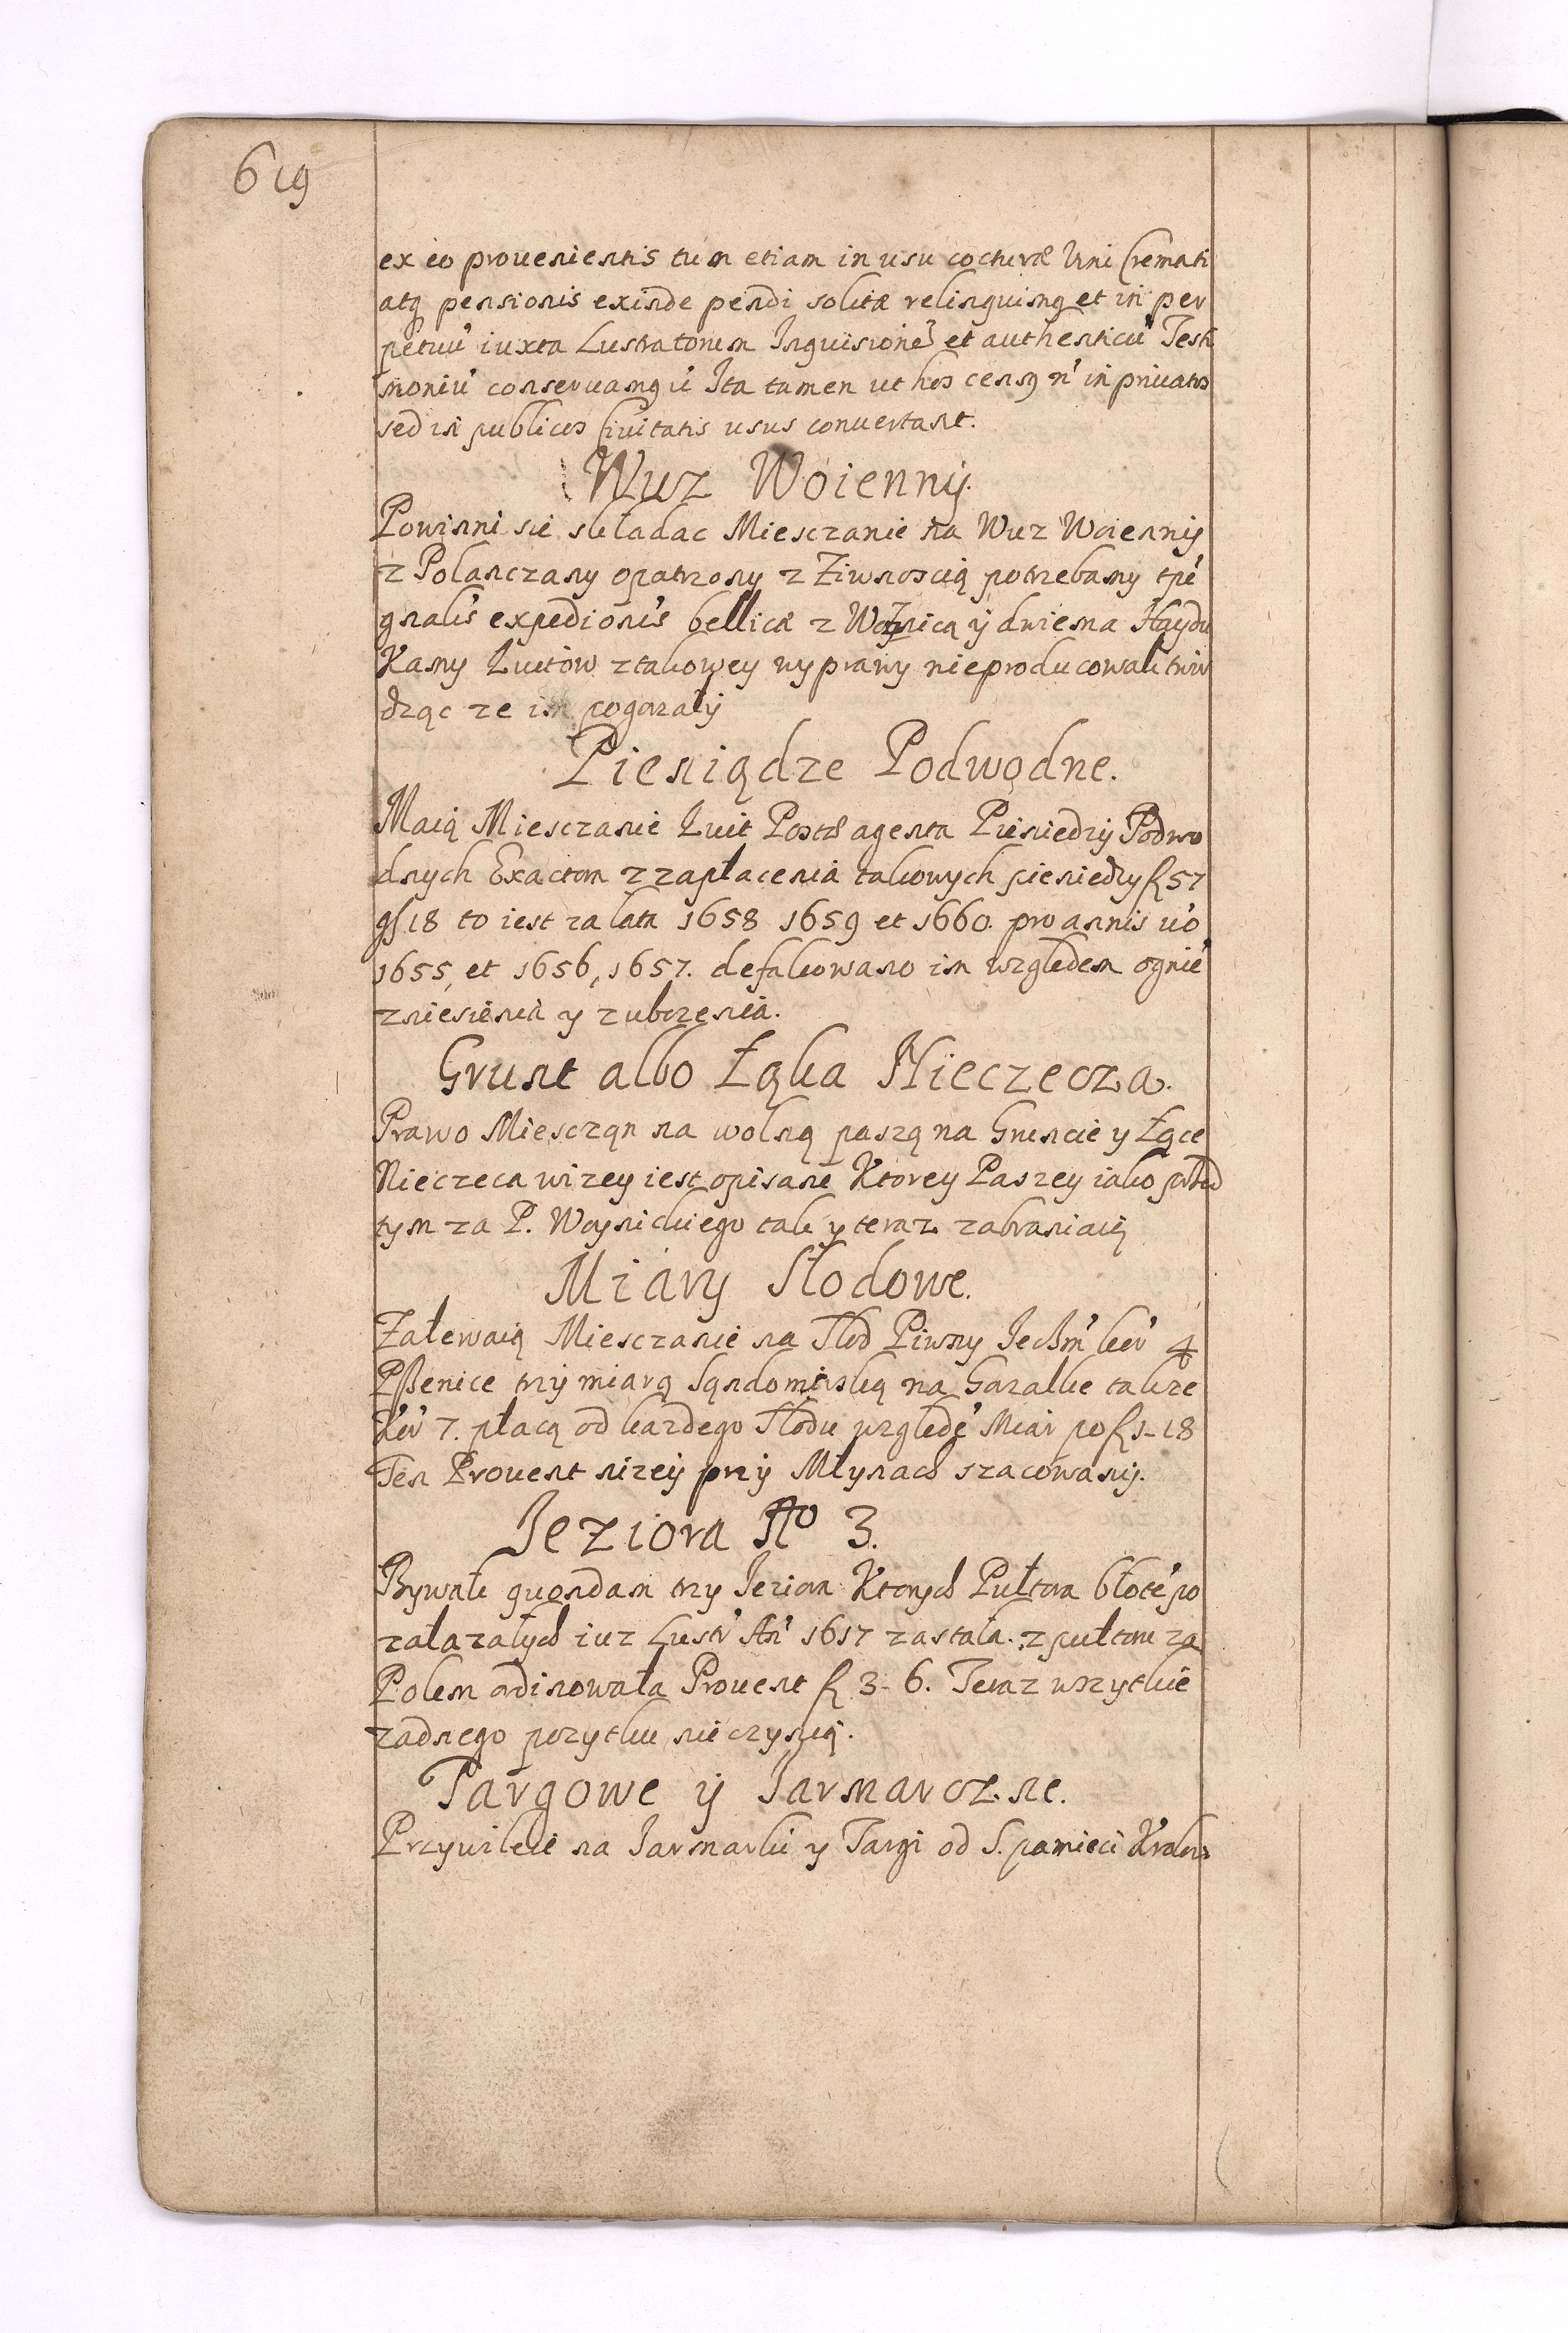 619
ex eo prouenientis tum etiam in usu cocturæ Vini Cremati
atq pensionis exinde pendi solitæ relinquimq et in per
petuu iuxta Lustratorum Inquisione et authenticu Testi
moniu conseruamq Ita tamen ut hos censq n in priuatos
sed in publicos Ciuitatis usus conuertant.
Wuz Woienny.
Powinni sie składac Miesczanie na Wuz Woienny
z Polanczany opatrzony z Ziwnoscią potrzebamy tpe
gnalis expedionis bellicæ z Woznicą y dwiema Haydu
kamy kwitow z takowey wyprawy nieproducowali twir
dząc ze im pogorzały
Pieniądze Podwodne.
Maią Miesczanie kwit Postæ agenta Pieniedzy Podwo
dnych Exactora z zapłacenia takowych pieniedzy f 57
gs 18 to iest za lata 1658 1659 et 1660. pro annis vo
1655, et 1656, 1657. defalkowano im względem ognie
zniesienia y zubozenia.
Grunt albo Łąka Nieczecza.
Prawo Miescząn na wolną paszą na Gruncie y Łące
Nieczeca wizey iest opisane Ktorey Paszey iako przed
tym za P. Woynickiego tak y teraz zabraniaią
Miary Słodowe.
Zalewaią Miesczanie na Słod Piwny Jeczm ker 4
Pszenice trzy miarą Sąndomirską na Garzałke takze
Ker 7. płacą od kazdego Słodu względe Miar po f 1-18
Ten Prouent nizey przy Młynach szacowany.
Jeziora No 3.
Bywały quondam trzy Jeziora Ktorych Pułtora błote po
załazałych iuz Lustr An 1617 zastała. z pułtoru za
Polem ordinowała Prouent f 3-6. Teraz wszytkie
zadnego pozytku nie czynią.
Targowe y Jarmarczne.
Przywileie na Jarmarki y Targi od S. pamieci Krolow